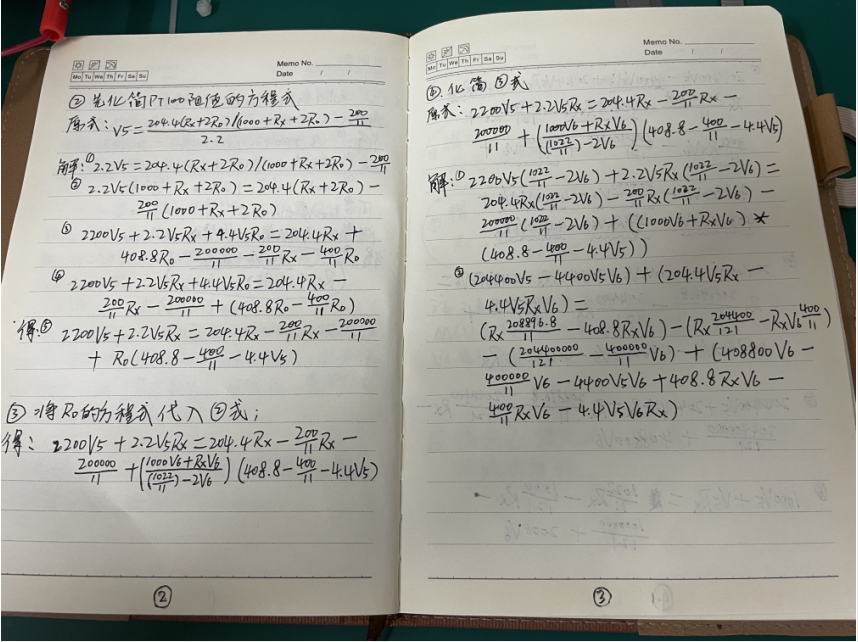 Memo No.
Mo Tu We Th Fr Sa Su
Date / /
② 先化简PT100阻值的方程式
原式: V5 = (204.4(Rx+2R0)/(1000+Rx+2R0) - 200/11) / 2.2
解:① 2.2V5 = 204.4(Rx+2R0)/(1000+Rx+2R0) - 200/11
② 2.2V5(1000+Rx+2R0) = 204.4(Rx+2R0) -
200/11 (1000+Rx+2R0)
③ 2200V5+2.2V5Rx+4.4V5R0 = 204.4Rx +
408.8R0 - 200000/11 - 200/11 Rx - 400/11 R0
④ 2200V5+2.2V5Rx+4.4V5R0 = 204.4Rx -
200/11 Rx - 200000/11 + (408.8R0 - 400/11 R0)
得:⑤ 2200V5+2.2V5Rx = 204.4Rx - 200/11 Rx - 200000/11
+ R0(408.8 - 400/11 - 4.4V5)
③ 将R0的方程式代入②式;
得: 2200V5+2.2V5Rx = 204.4Rx - 200/11 Rx -
200000/11 + ((1000V6+RxV6)/((1022/11)-2V6)) (408.8 - 400/11 - 4.4V5)
②
Memo No.
Mo Tu We Th Fr Sa Su
Date / /
④. 化简③式
原式: 2200V5+2.2V5Rx = 204.4Rx - 200/11 Rx -
200000/11 + ((1000V6+RxV6)/((1022/11)-2V6)) (408.8 - 400/11 - 4.4V5)
解:① 2200V5(1022/11 - 2V6) + 2.2V5Rx(1022/11 - 2V6) =
204.4Rx(1022/11 - 2V6) - 200/11 Rx(1022/11 - 2V6) -
200000/11 (1022/11 - 2V6) + ((1000V6+RxV6) *
(408.8 - 400/11 - 4.4V5))
② (204400V5 - 4400V5V6) + (204.4V5Rx -
4.4V5RxV6) =
(Rx 208896.8/11 - 408.8RxV6) - (Rx 204400/121 - RxV6 400/11)
- (204400000/121 - 400000/11 V6) + (408800V6 -
400000/11 V6 - 4400V5V6 + 408.8RxV6 -
400/11 RxV6 - 4.4V5V6Rx)
③